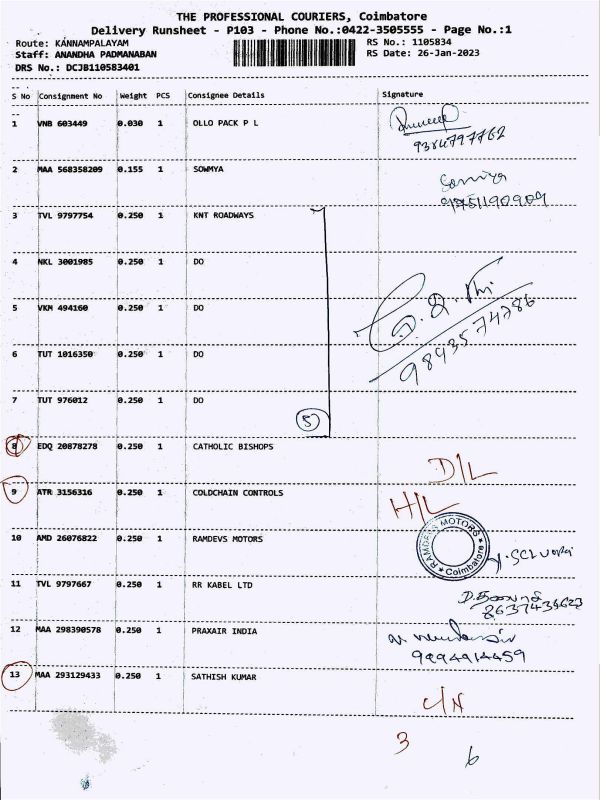 THE PROFESSIONAL COURIERS, Coimbatore
Delivery Runsheet - P103 - Phone No.:0422-3505555 - Page No.:1
Route: KANNAMPALAYAM
RS No.: 1105834
Staff: ANANDHA PADMANABAN
RS Date: 26-Jan-2023
DRS No.: DCJB110583401
S No Consignment No Weight PCS Consignee Details Signature
1 VNB 603449 0.030 1 OLLO PACK P L
2 MAA 568358209 0.155 1 SOWMYA Sowmiya
3 TVL 9797754 0.250 1 KNT ROADWAYS
4 NKL 3001985 0.250 1 DO
5 VKM 494160 0.250 1 DO
6 TUT 1016350 0.250 1 DO
9893574786
7 TUT 976012 0.250 1 DO
5
8 EDQ 20878278 0.250 1 CATHOLIC BISHOPS D/L
9 ATR 3156316 0.250 1 COLDCHAIN CONTROLS H/L
10 AMD 26076822 0.250 1 RAMDEVS MOTORS RAMDEVS MOTORS Coimbatore
11 TVL 9797667 0.250 1 RR KABEL LTD
12 MAA 298390578 0.250 1 PRAXAIR INDIA
9894914459
13 MAA 293129433 0.250 1 SATHISH KUMAR C/N
3 6